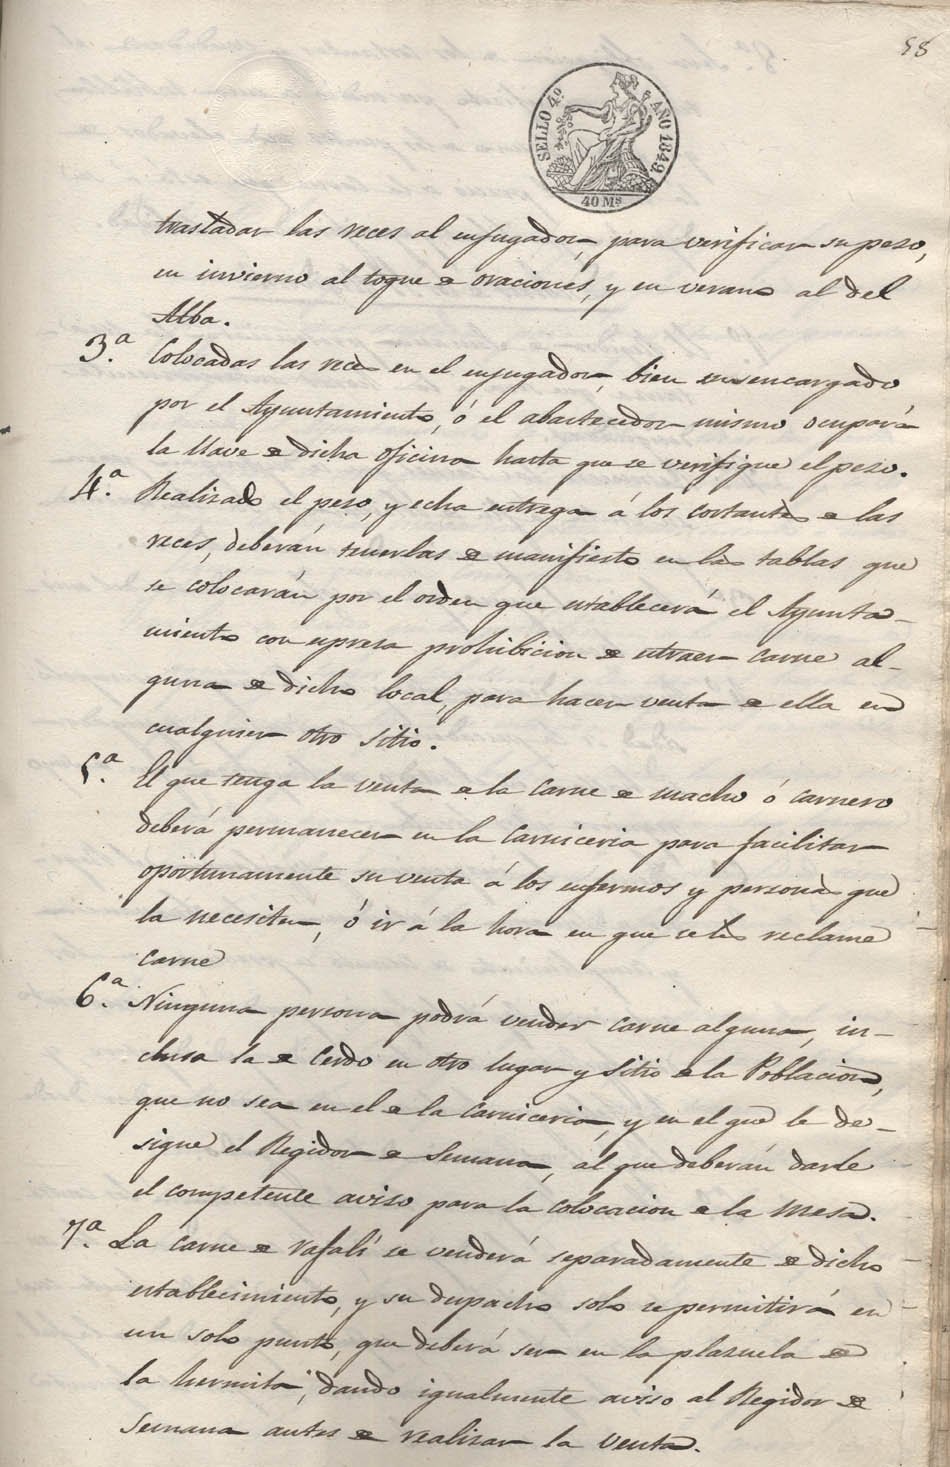 58
SELLO 4º AÑO 1849.
40 Mˢ
trasladar las reces al enjugador, para verificar su peso,
en invierno al toque de oraciones, y en verano al del
Alba.
3.ª Colocadas las reces en el enjugador, bien un encargado
por el Ayuntamiento, ó el abastecedor mismo ocupará
la llave de dicha oficina hasta que se verifique el peso.
4.ª Realisado el peso, y echa entrega á los cortantes de las
reces, deberán tenerlas de manifiesto en las tablas que
se colocarán por el orden que establecerá el Ayunta-
miento con espresa prohibicion de estraer carne al-
guna de dicho local, para hacer venta de ella en
cualquier otro sitio.
5.ª El que tenga la venta de la carne de macho ó carnero
deberá permanecer en la Carniceria para facilitar
oportunamente su venta á los enfermos y personas que
la necesiten, ó ir á la hora en que se les reclame
carne
6.ª Ninguna persona podrá vender carne alguna, in-
clusa la de Cerdo en otro lugar y sitio de la Poblacion,
que no sea en el de la Carniceria, y en el que le de-
signe el Regidor de Semana, al que deberán darle
el competente aviso para la colocacion de la Mesa.
7.ª La carne de rafalí se venderá separadamente de dicho
establecimiento, y su despacho solo se permitirá en
un solo punto, que deberá ser en la plazuela de
la hermita, dando igualmente aviso al Regidor de
Semana antes de realisar la venta.